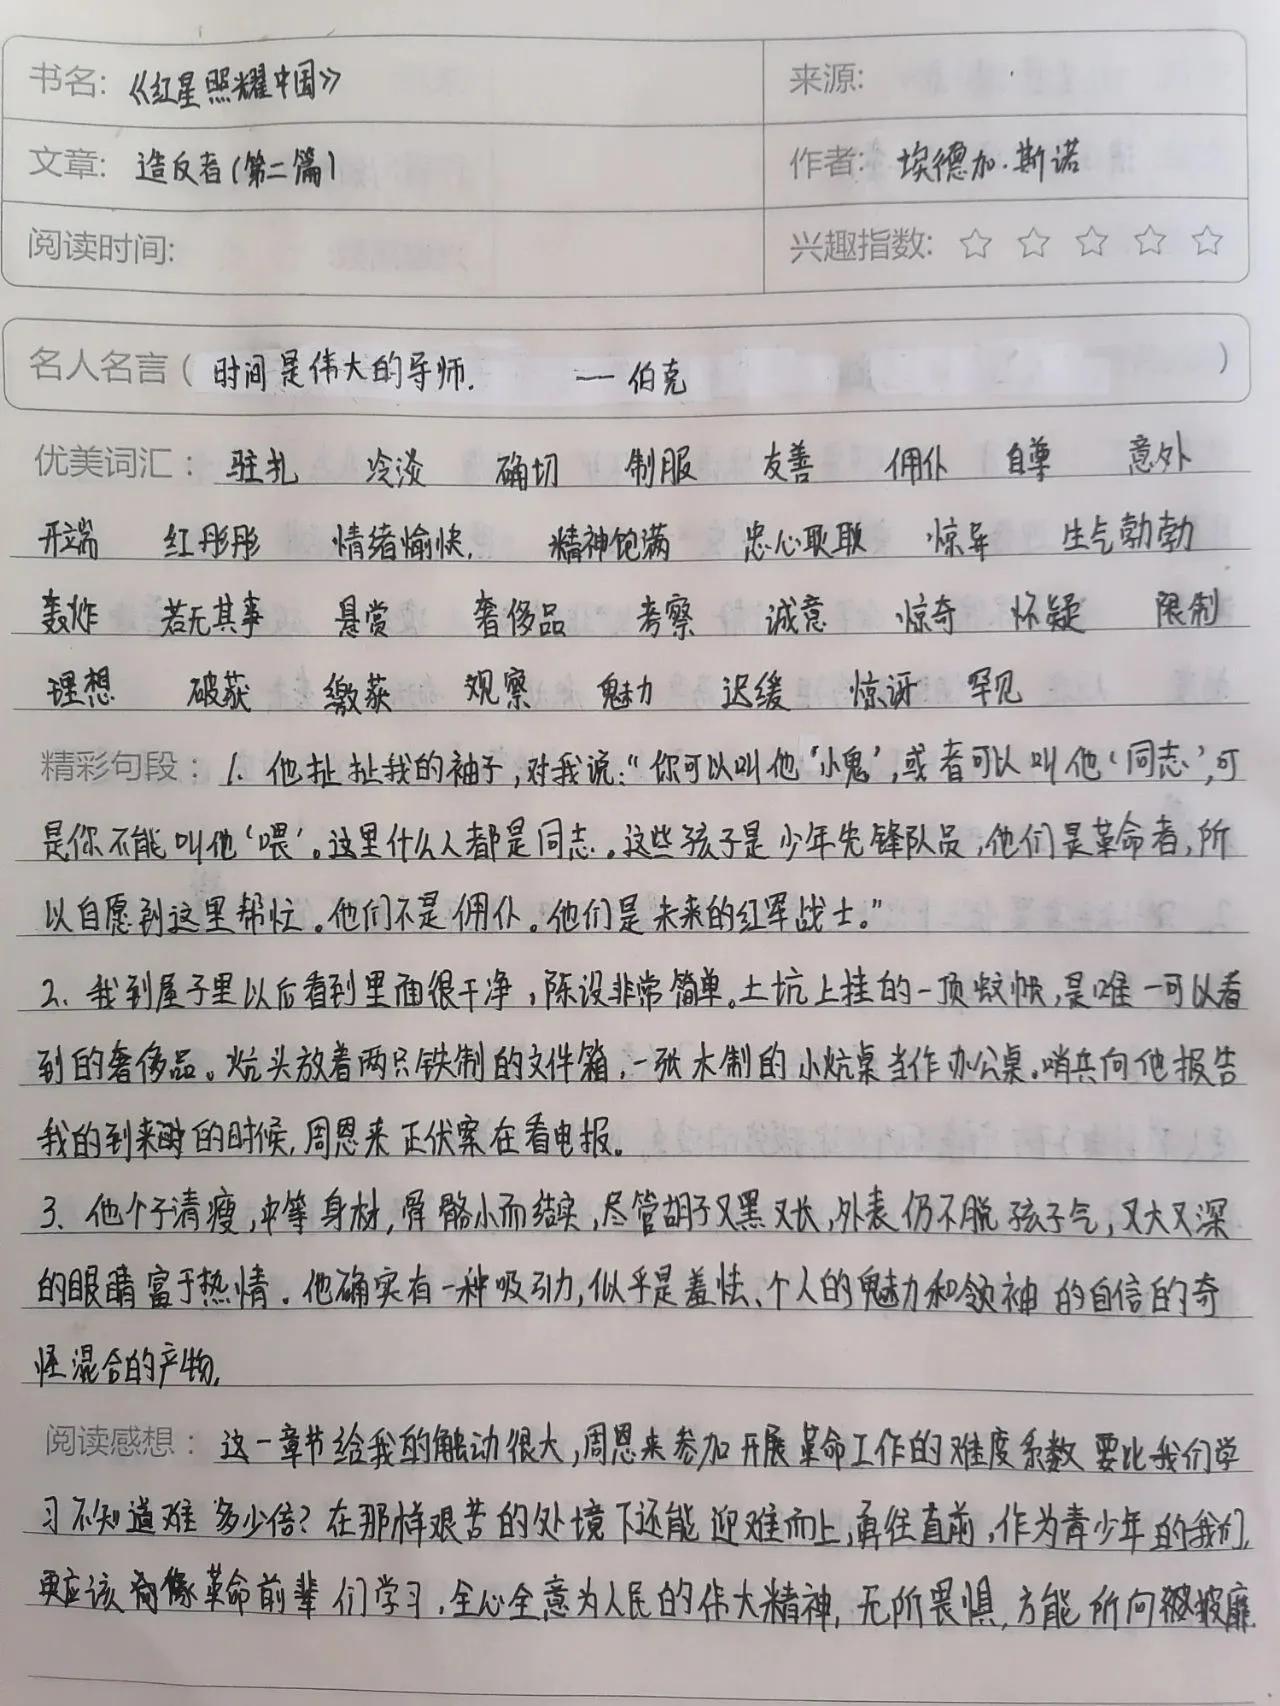 书名: 《红星照耀中国》 来源:
文章: 造反者(第二篇) 作者: 埃德加·斯诺
阅读时间: 兴趣指数: ☆ ☆ ☆ ☆ ☆
名人名言( 时间是伟大的导师. —伯克 )
优美词汇: 驻扎 冷淡 确切 制服 友善 佣仆 自尊 意外
开端 红彤彤 情绪愉快. 精神饱满 忠心耿耿 惊异 生气勃勃
轰炸 若无其事 悬赏 奢侈品 考察 诚意 惊奇 怀疑 限制
理想 破获 缴获 观察 魅力 迟缓 惊讶 罕见
精彩句段: 1. 他扯扯我的袖子,对我说:“你可以叫他‘小鬼’,或者可以叫他‘同志’,可
是你不能叫他‘喂’。这里什么人都是同志。这些孩子是少年先锋队员,他们是革命者,所
以自愿到这里帮忙。他们不是佣仆。他们是未来的红军战士。”
2、我到屋子里以后看到里面很干净,陈设非常简单。土坑上挂的一顶蚊帐,是唯一可以看
到的奢侈品。炕头放着两只铁制的文件箱,一张木制的小炕桌当作办公桌。哨兵向他报告
我的到来的时候,周恩来正伏案在看电报。
3、他个子清瘦,中等身材,骨骼小而结实,尽管胡子又黑又长,外表仍不脱孩子气,又大又深
的眼睛富于热情。他确实有一种吸引力,似乎是羞怯、个人的魅力和领袖的自信的奇
怪混合的产物.
阅读感想: 这一章节给我的触动很大,周恩来参加开展革命工作的难度系数要比我们学
习不知道难多少倍?在那样艰苦的处境下还能迎难而上,勇往直前,作为青少年的我们,
更应该像革命前辈们学习,全心全意为人民的伟大精神,无所畏惧,方能所向披靡.